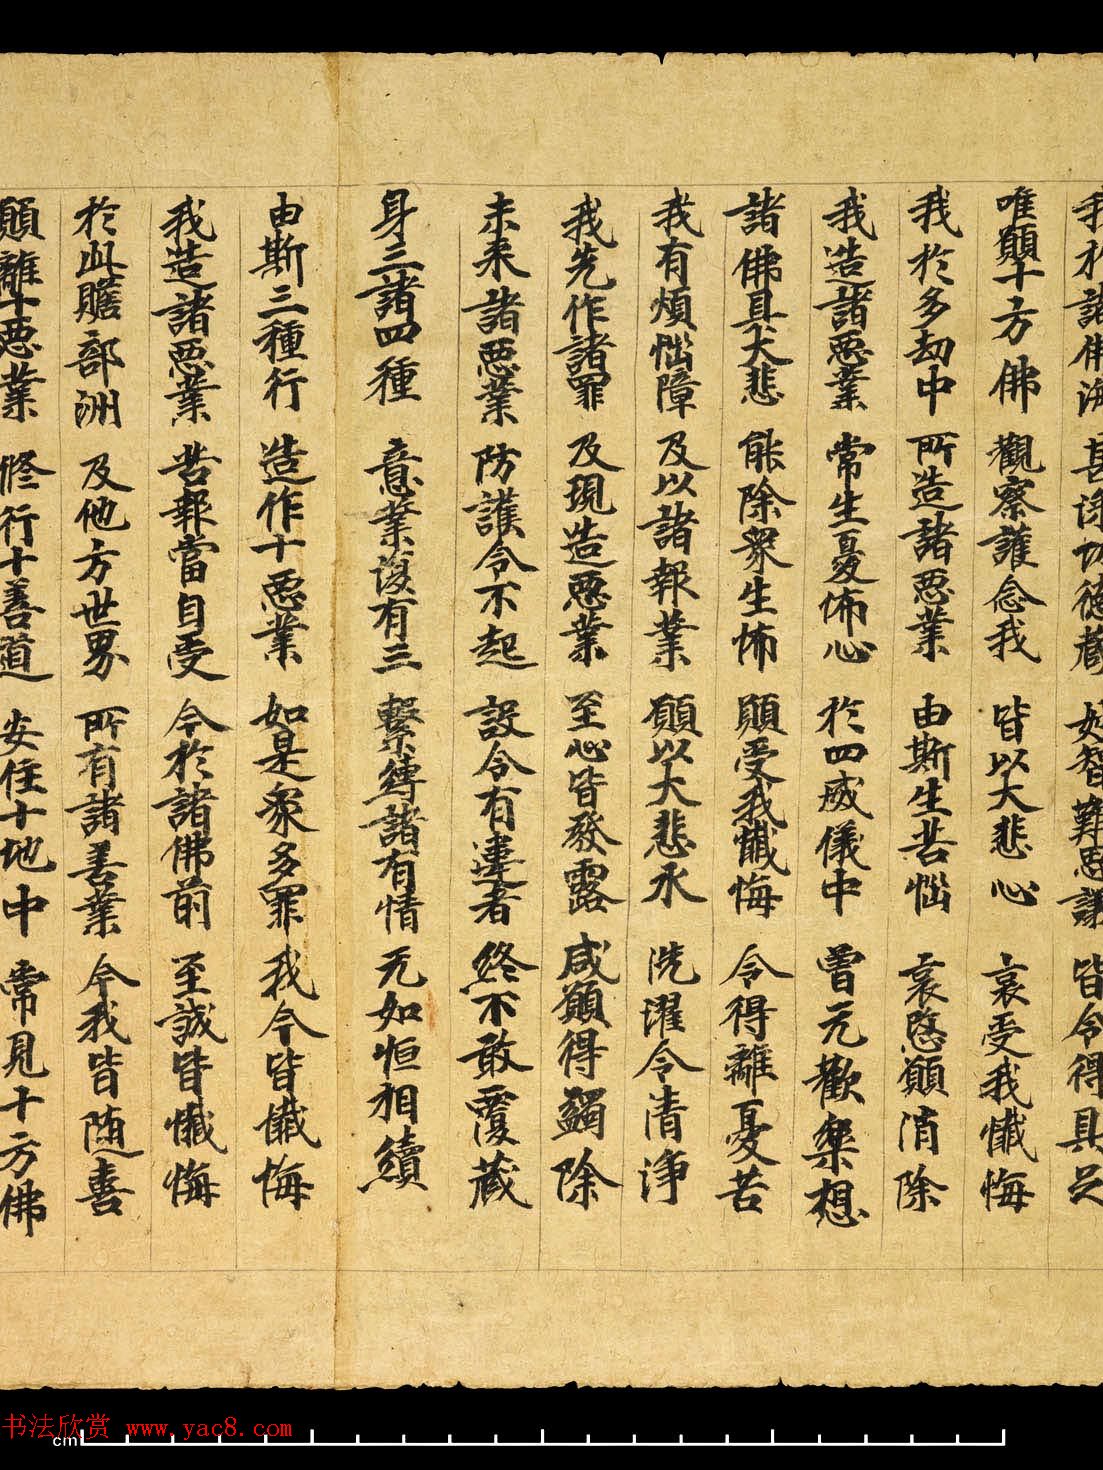 我於諸佛海 甚深功德藏 妙智難思議 皆令得具足
唯願十方佛 觀察護念我 皆以大悲心 哀受我懺悔
我於多劫中 所造諸惡業 由斯生苦惱 哀愍願消除
我造諸惡業 常生憂怖心 於四威儀中 曾无歡樂想
諸佛具大悲 能除衆生怖 願受我懺悔 令得離憂苦
我有煩惱障 及以諸報業 願以大悲水 洗濯令清淨
我先作諸罪 及現造惡業 至心皆發露 咸願得蠲除
未来諸惡業 防護令不起 設令有違者 終不敢覆藏
身三諸四種 意業復有三 繫縛諸有情 无始恒相續
由斯三種行 造作十惡業 如是衆多罪 我今皆懺悔
我造諸惡業 苦報當自受 今於諸佛前 至誠皆懺悔
於此贍部洲 及他方世界 所有諸善業 今我皆随喜
願離十惡業 修行十善道 安住十地中 常見十方佛
书法欣赏 www.yac8.com
cm